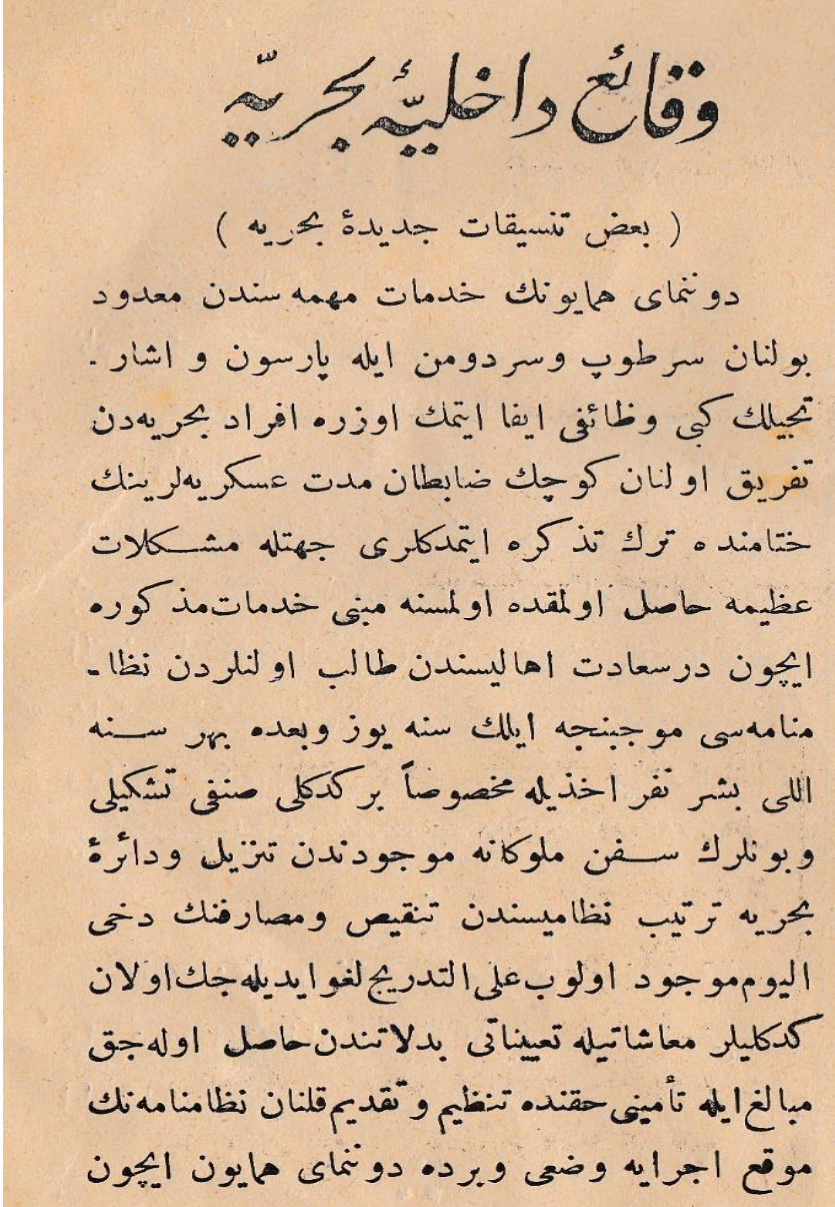 وقائع داخلیّۀ بحریّه
( بعض تنسیقات جدیدۀ بحریه )
دوننمای همایونك خدمات مهمه سندن معدود
بولنان سرطوپ وسردومن ایله پارسون و اشار -
تجیلك کبی وظائفی ایفا ایتمك اوزره افراد بحریه‌دن
تفریق اولنان کوچك ضابطان مدت عسکریه‌لرینك
ختامنده ترك تذکره ایتمدکلری جهتله مشکلات
عظیمه حاصل اولمقده اولمسنه مبنی خدمات‌مذکوره
ایچون درسعادت اهالیسندن طالب اولنلردن نظا -
منامه‌سی موجبنجه ایلك سنه یوز وبعده بهر سنه
اللی بشر نفر اخذیله مخصوصاً بر کدکلی صنفی تشکیلی
وبونلرك سفن ملوکانه موجودندن تنزیل ودائرۀ
بحریه ترتیب نظامیسندن تنقیص ومصارفنك دخی
الیوم‌موجود اولوب‌علی‌التدریج لغوایدیله‌جك‌اولان
کدکلیلر معاشاتیله تعییناتی بدلاتندن‌حاصل اوله‌جق
مبالغ‌ایله تأمینی‌حقنده تنظیم و تقدیم‌قلنان نظامنامه‌نك
موقع اجرایه وضعی وبرده دوننمای همایون ایچون